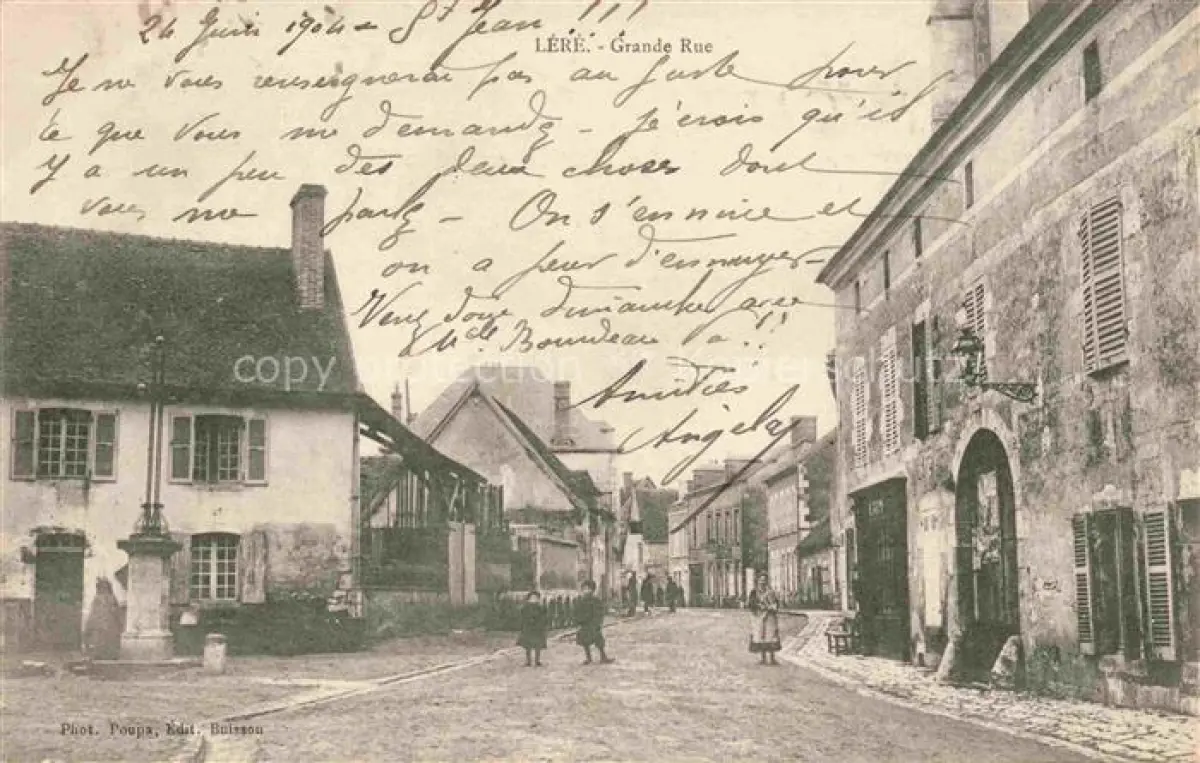 24 Juin 1904 - St Jean !!!
LÉRÉ. - Grande Rue
Je ne vous renseignerai pas au juste pour
ce que vous me demandez - je crois qu'il
y a un peu des deux choses dont
vous me parlez - On s'ennuie et
on a peur d'ennuyer -
Venez donc dimanche avec
Mlle Bourdeau !!
Amitiés
Angela
copy protection
Phot. Poupa, Edit. Buisson